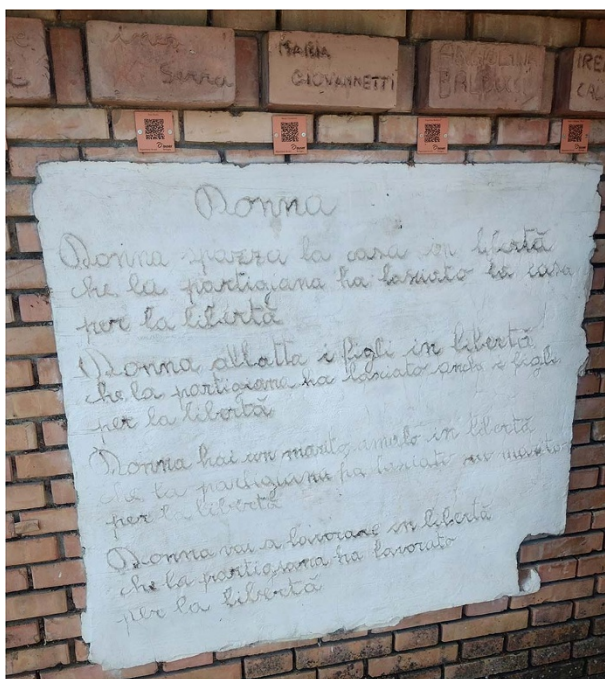 Serra
MARIA
GIOVANNETTI
IRE
Donna
Donna spazza la casa in libertà
che la partigiana ha lasciato la casa
per la libertà
Donna allatta i figli in libertà
che la partigiana ha lasciato anch i figli
per la libertà
Donna hai un marito amalo in libertà
che la partigiana ha lasciato un marito
per la libertà
Donna vai a lavorare in libertà
che la partigiana ha lavorato
per la libertà